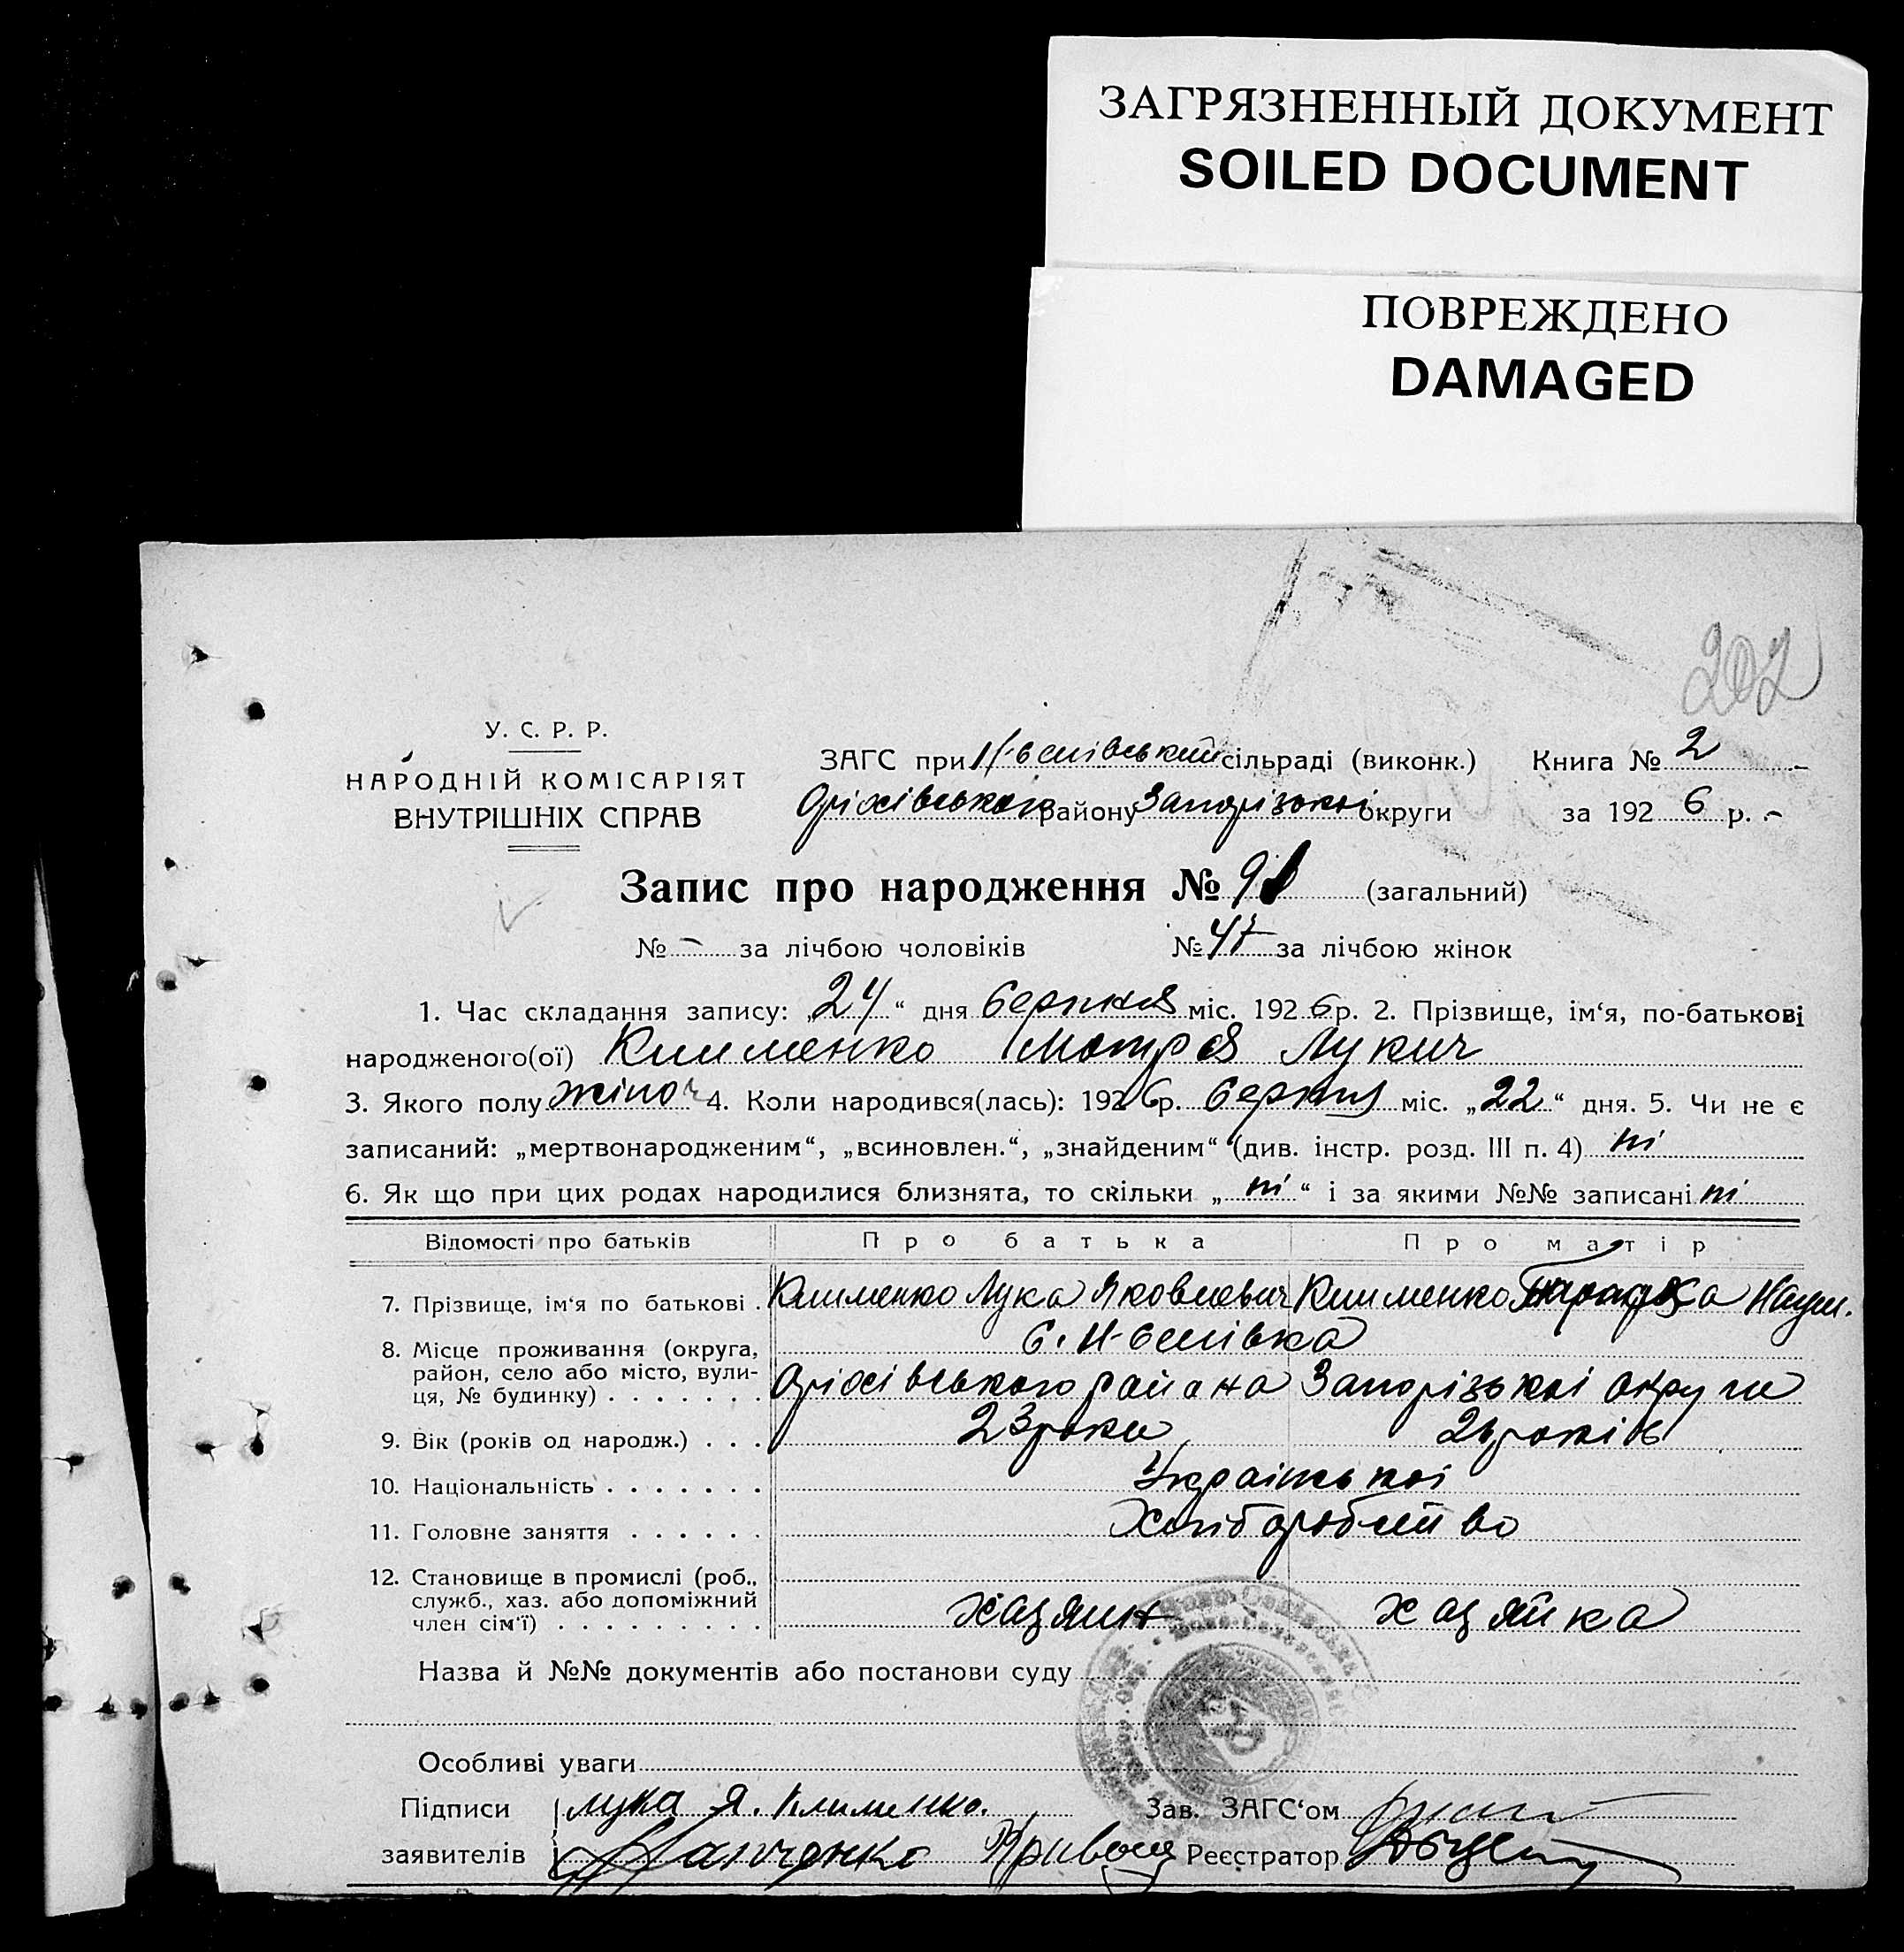 ЗАГРЯЗНЕННЫЙ ДОКУМЕНТ
SOILED DOCUMENT
ПОВРЕЖДЕНО
DAMAGED
202
У. С. Р. Р.
НАРОДНІЙ КОМІСАРІЯТ
ВНУТРІШНІХ СПРАВ
ЗАГС при сільраді (виконк.) Книга № 2
Оріхівського району Запорізької округи за 192 6 р.
Запис про народження № 91 (загальний)
№ - за лічбою чоловіків № 47 за лічбою жінок
1. Час складання запису: „24“ дня серпня міс. 192 6 р. 2. Прізвище, ім‘я, по-батькові
народженого(ої) Клименко Мотря Лукич
3. Якого полу жіноч 4. Коли народився(лась): 192 6 р. серпня міс. „22“ дня. 5. Чи не є
записаний: „мертвонародженим“, „всиновлен.“, „знайденим“ (див. інстр. розд. III п. 4) ні
6. Як що при цих родах народилися близнята, то скільки „ ні “ і за якими №№ записані ні
Відомості про батьків Про батька Про матір
7. Прізвище, ім‘я по батькові . Клименко Лука Яковлевич Клименко Наум.
8. Місце проживання (округа,
район, село або місто, вули-
ця, № будинку) . . . . . . . Оріхівського района Запорізької округи
9. Вік (років од народж.) . . . 23 роки років
10. Національність . . . . . . . Української
11. Головне заняття . . . . . . Хліборобство
12. Становище в промислі (роб.,
служб., хаз. або допоміжний
член сім‘ї) . . . . . . . . . хазяин хазяйка
Назва й №№ документів або постанови суду
Особливі уваги
Підписи Лука Я. Клименко. Зав. ЗАГС‘ом
заявителів Реєстратор